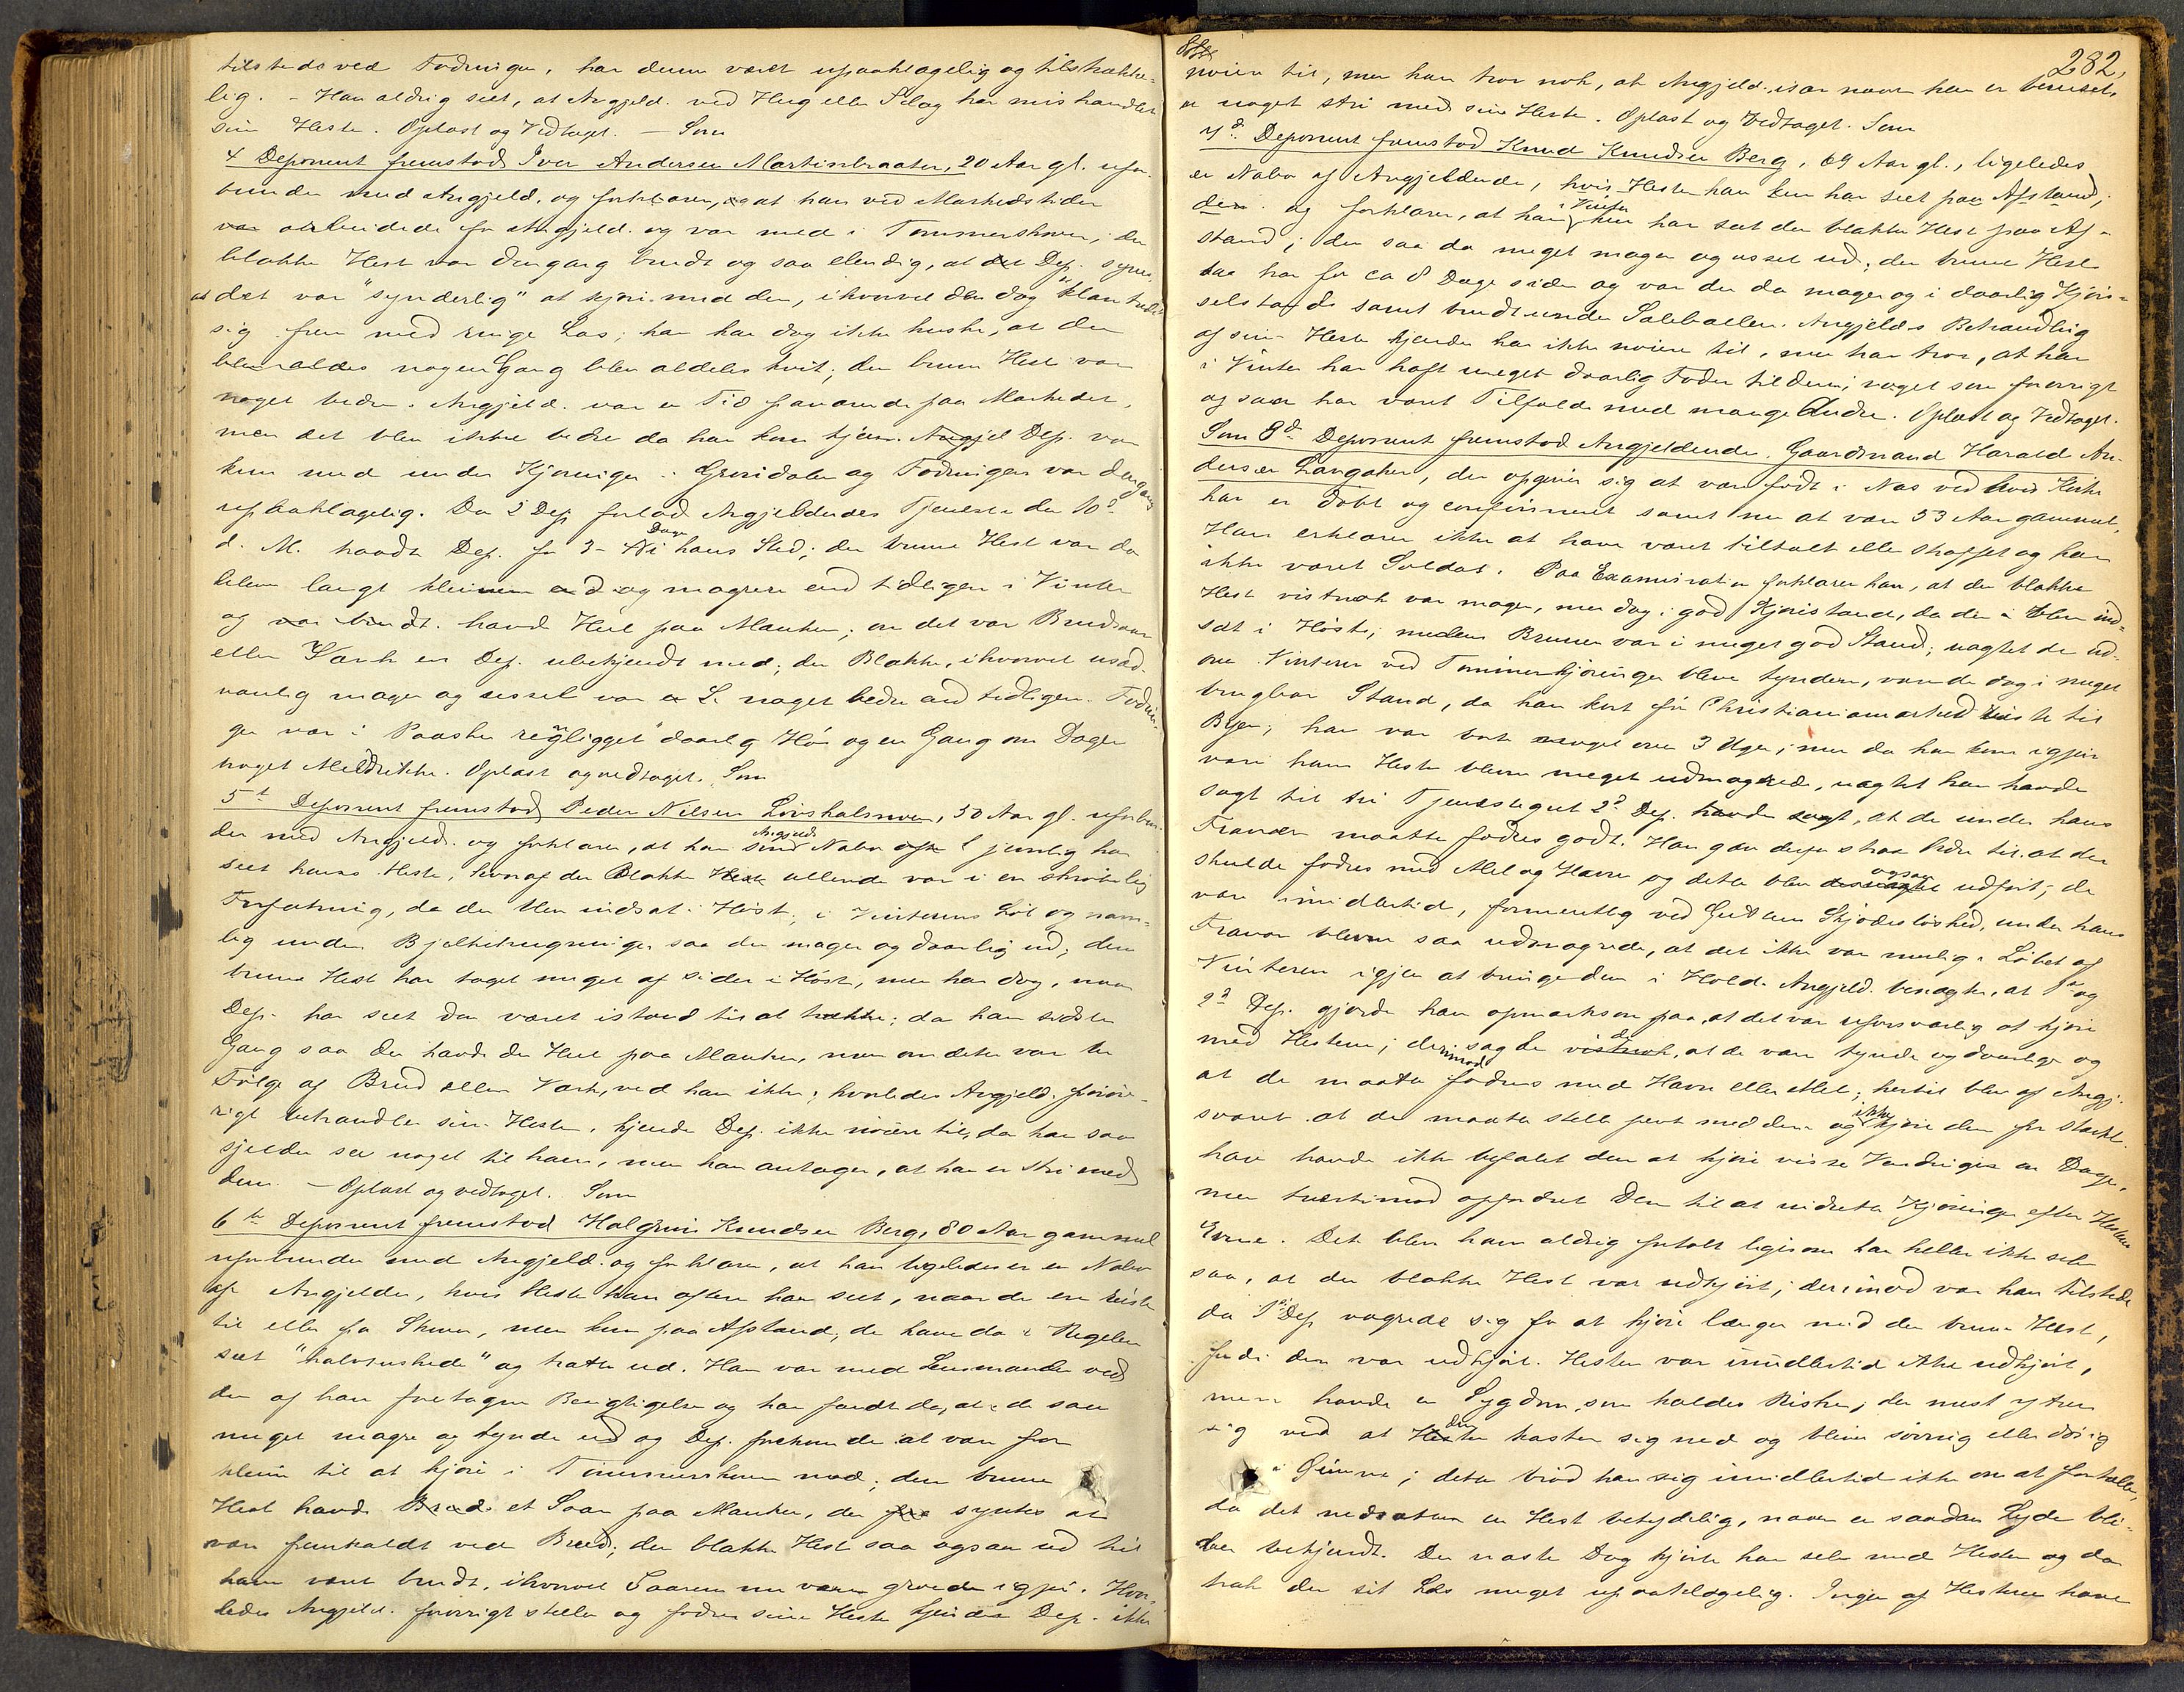 tilstede ved Fodringen, har denne været upaaklagelig og tilstrække-
lig. - Han aldrig seet, at Angjeld. ved Hug eller Slag har mishandlet
sine Heste. Oplæst og Vedtaget. — Som
4 Deponent fremstod Iver Andersen Martinbraaten, 20 Aar gl. ufor-
bunden med Angjeld. og forklarer, at han ved Markedstider
arbeidede for Angjeld. og var med i Tømmerskoven; den
blakke Hest var dengang brudt og saa elendig, at Dep. synes
at det var "synderlig" at kjøre med den, ihvorvel den dog klarede
sig frem med ringe Læs; han kan dog ikke huske, at den
nogen Gang blev aldeles hvit; den brune Hest var
noget bedre. Angjeld. var en Tid fraværende paa Markedet,
men det blev ikke bedre da han kom hjem. Dep. var
kun med under Kjøringen i Grøndalen og Fodringen var dengang
upaaklagelig. Da 2 Dep forlod Angjeldendes Tjeneste den 10d
d. M. havde Dep. for 3- Dage hans Sted; den brune Hest var da
bleven langt kleinere og magrere end tidligere i Vinter
og havde Hul paa Manken; om det var Brudsaar
eller Værk er Dep. ubekjendt med; den Blakke, ihvorvel usæd-
vanlig mager og ussel var noget bedre end tidligere. Fodrin-
gen var i Paasken regnligget daarlig Hø og en Gang om Dagen
noget Meldrikke. Oplæst og vedtaget. Som
5te Deponent fremstod Peder Nilsen Lövshalsmoen, 50 Aar gl. uforbun-
den med Angjeld. og forklarer, at han Angjelds Nabo jevnlig har
seet hans Heste, hvoraf den Blakke allerede var i en skrøbelig
Forfatning, da den blev indsat i Høst; i Vinterens Løb og navn-
lig under Bjelketrugningen saa den mager og daarlig ud; den
brune Hest har taget meget af siden i Høst, men har dog, naar
Dep. har seet den været istand til at trække; da han sidste
Gang saa den havde den Hul paa Manken, men om dette var en
Følge af Brud eller Værk, ved han ikke; hvorledes Angjeld. foröv-
rigt behandler sine Heste, kjender Dep. ikke nøiere til, da han saa
sjelden ser noget til ham, men han antager, at han er stri med
dem. — Oplæst og vedtaget. Som
6te Deponent fremstod Halgrim Knudsen Berg, 80 Aar gammel
uforbunden med Angjeld. og forklarer, at han ligeledes er en Nabo
af Angjelden, hvis Heste han oftere har seet, naar de ere reiste
til eller fra Skoven, men kun paa Afstand; de have da i Regelen
seet "halvsuskede" og trætte ud. Han var med Lensmanden ved
den af ham foretagne Besigtigelse og han fandt da, at de saa
meget magre og tynde ud og Dep. forekom de at være for
kleine til at kjøre i Tømmerskoven med; den brune
Hest havde et Saar paa Manken, der syntes at
være fremkaldt ved Brud; den blakke Hest saa ogsaa ud til
have været brudt, ihvorvel Saarene nu vare groede igjen. Hvor-
ledes Angjeld. forövrigt steller og fodrer sine Heste kjender Dep. ikke
282.
nøiere til, men han tror nok, at Angjeld. især naar han er beruset,
er noget stri med sine Heste. Oplæst og Vedtaget. Som
7de Deponent fremstod Knud Knudsen Berg, 69 Aar gl., ligeledes
en Nabo af Angjeldende, hvis Heste han kun har seet paa Afstand;
og forklarer, at han i Vinter kun har seet den blakke Hest paa Af-
stand; den saa da meget mager og ussel ud; den brune Hest
saa han for ca 8 Dage siden og var den da mager og i daarlig Kjørs-
selstand samt brudt under Salebollen. Angjelds Behandling
af sine Heste kjender han ikke nøiere til, men han tror, at han
i Vinter har haft meget daarlig Foder til dem, noget som forövrigt
ogsaa har været Tilfælde med mange Andre. Oplæst og Vedtaget.
Som 8de Deponent fremstod Angjeldende, Gaardmand Harald An-
dersen Langaker, der opgiver sig at være født i Næs ved hvis Kirke
han er døbt og confirmeret samt nu at være 53 Aar gammel.
Han erklærer ikke at have været tiltalt eller straffet og har
ikke været Soldat. Paa Examination forklarer han, at den blakke
Hest vistnok var mager, men dog i god Kjørstand, da den blev ind-
sat i Høst; medens Brunen var i meget god Stand; uagtet de ud-
over Vinteren ved Tømmerkjøringen bleve tyndere, vare de dog i meget
brugbar Stand, da han kort før Christianiamarked reiste til
Byen; han var borte noget over 3 Uger; men da han kom igjen
vare hans Heste blevne meget udmagrede, uagtet han havde
sagt til sin Tjenestegut 2d Dep., at de under hans
Fravær maatte fodres godt. Han gav desforuden Ordre til at den
skulde fodres med Mel og Havre og dette blev ogsaa udført; de
vare imidlertid, formentlig ved Guttens Skjødesløshed, under hans
Fravær blevne saa udmagrede, at det ikke var mulig i Løbet af
Vinteren igjen at bringe dem i Hold. Angjeld. benægter, at 1ste og
2d Dep. gjorde ham opmærksom paa, at det var uforsvarlig at kjøre
med Hestene; derimod sagde de, at de vare tynde og daarlige og
at de maatte fodres med Havre eller Mel; hertil blev af Angj.
svaret at de maatte stelle pent med dem og ikke kjøre dem for stærkt.
han havde ikke befalet dem at kjøre visse Vendinger om Dagen,
men tvertimod opfordret dem til at indrette Kjøringen efter Hestens
Evne. Det blev ham aldrig fortalt ligesom han heller ikke selv
saa, at den blakke Hest var udkjørt; derimod var han tilstede
da 1ste Dep vægrede sig for at kjøre længer med den brune Hest,
fordi den var udkjørt. Hesten var imidlertid ikke udkjørt,
men havde en Sygdom, som kaldes Risken, der mest ytrer
sig ved at den kaster sig ned og bliver sövnig eller dösig
i Öinene; dette brød han sig imidlertid ikke om at fortælle,
da det nedsætter en Hest betydelig, naar en saadan Lyde bli-
ver bekjendt. Den næste Dag kjørte han selv med Hesten og da
trak den sit Læs meget upaaklagelig. Ingen af Hestene have